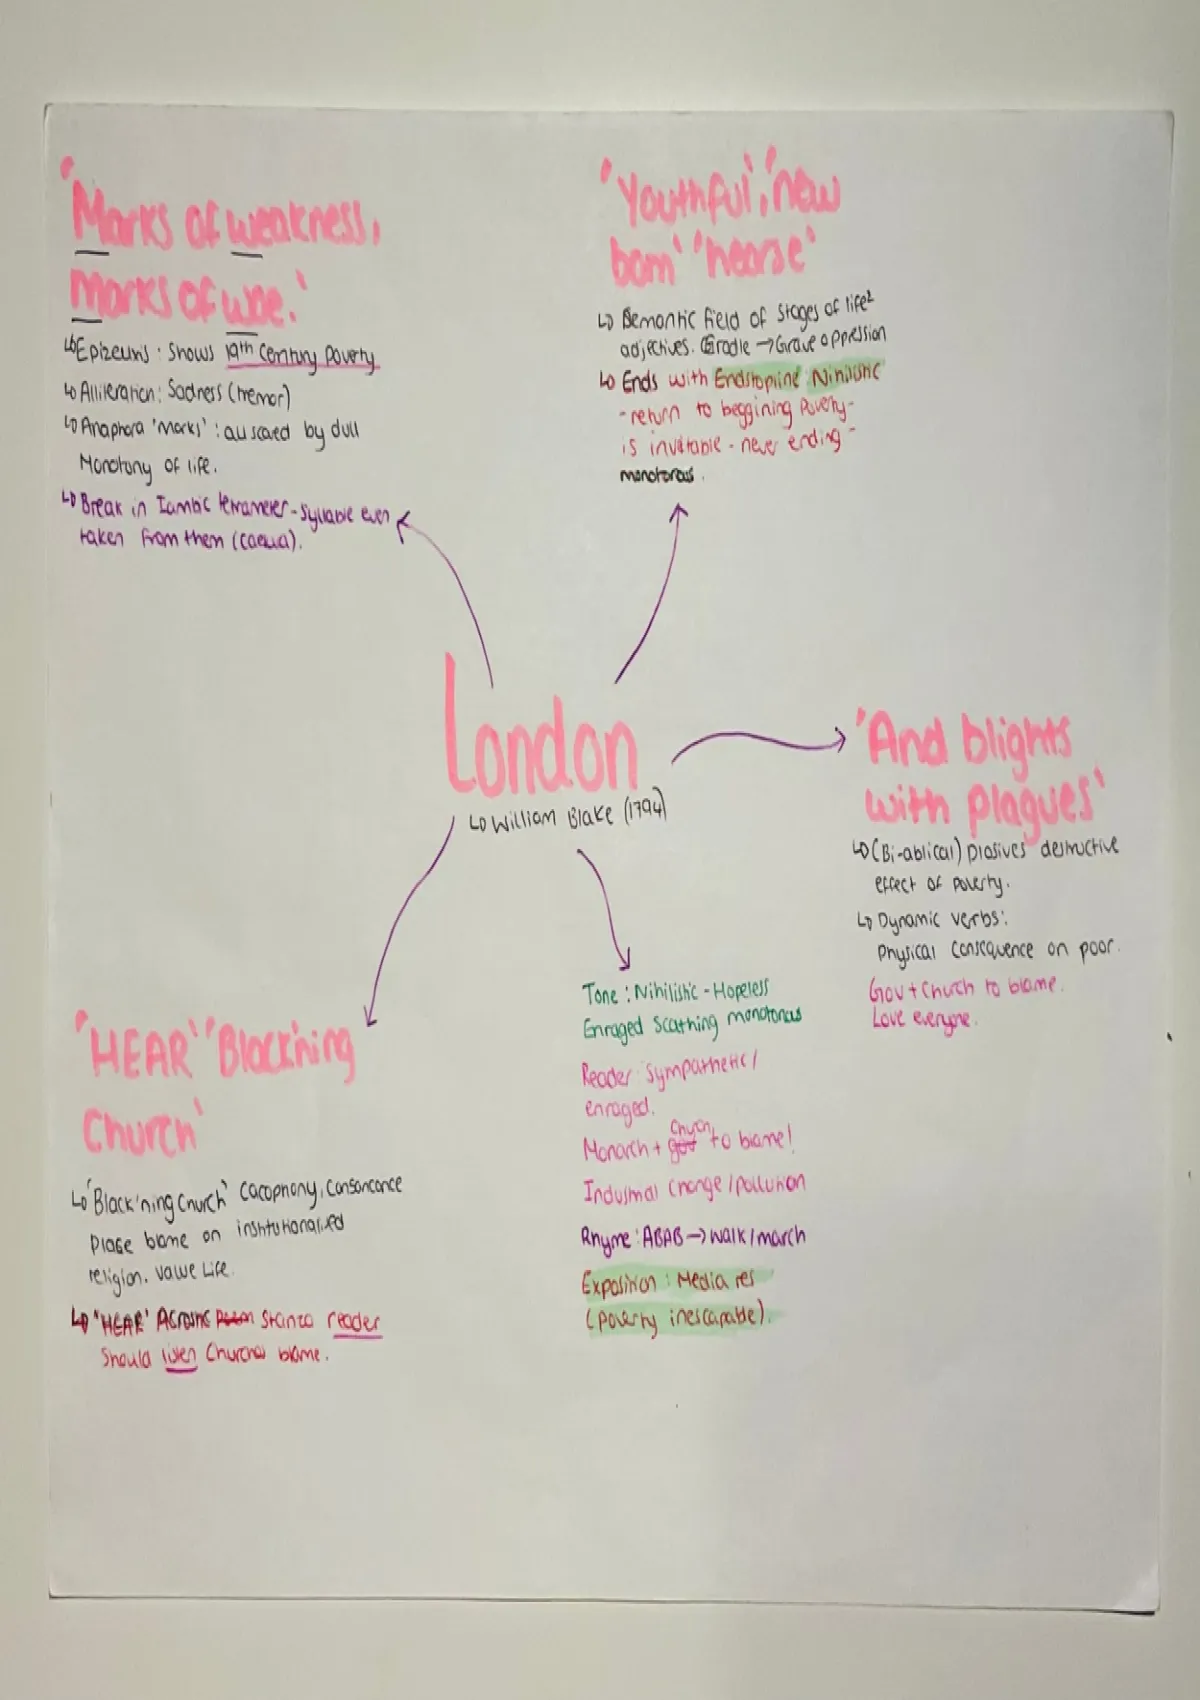 'Marks of weakness,
Marks of woe.'
Epizeuxis: Shows 19th Century Poverty
Alliteration: Sadness (tremor)
Anaphora 'marks': all scared by dull
Monotony of life.
Break in Iambic tetrameter - Syllable even
taken from them (caesua).
'Youthful', 'new
born' 'hearse'
Semantic field of stages of life²
adjectives. Cradle → Grave oppression
Ends with Endstopline Nihilistic
- return to beggining Poverty -
is invitable - never ending -
monotorous.
London
William Blake (1794)
'And blights
with plagues'
(Bi-ablical) plosives destructive
effect of poverty.
Dynamic verbs:
Physical consequence on poor.
Gov + Church to blame.
Love everyone.
'HEAR' 'Black'ning
Church'
'Black'ning Church' Cacophony, Consonance
Place blame on institutionalised
religion. Value Life.
'HEAR' Acrostic Poem Stanza reader
Should listen Churches blame.
Tone: Nihilistic - Hopeless
Enraged Scathing monotorous
Reader: Sympathetic/
enraged.
Church
Monarch + gov to blame!
Industrial Change / pollution
Rhyme: ABAB → walk/march
Exposition: Media res
(poverty inescapable).